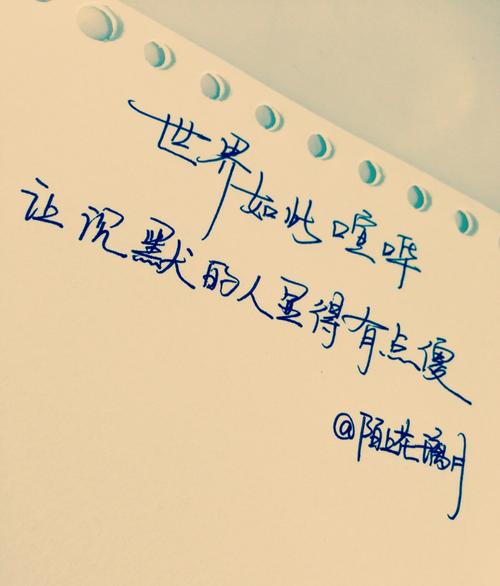 世界如此喧哗
让沉默的人显得有点傻
@陌上花璃月